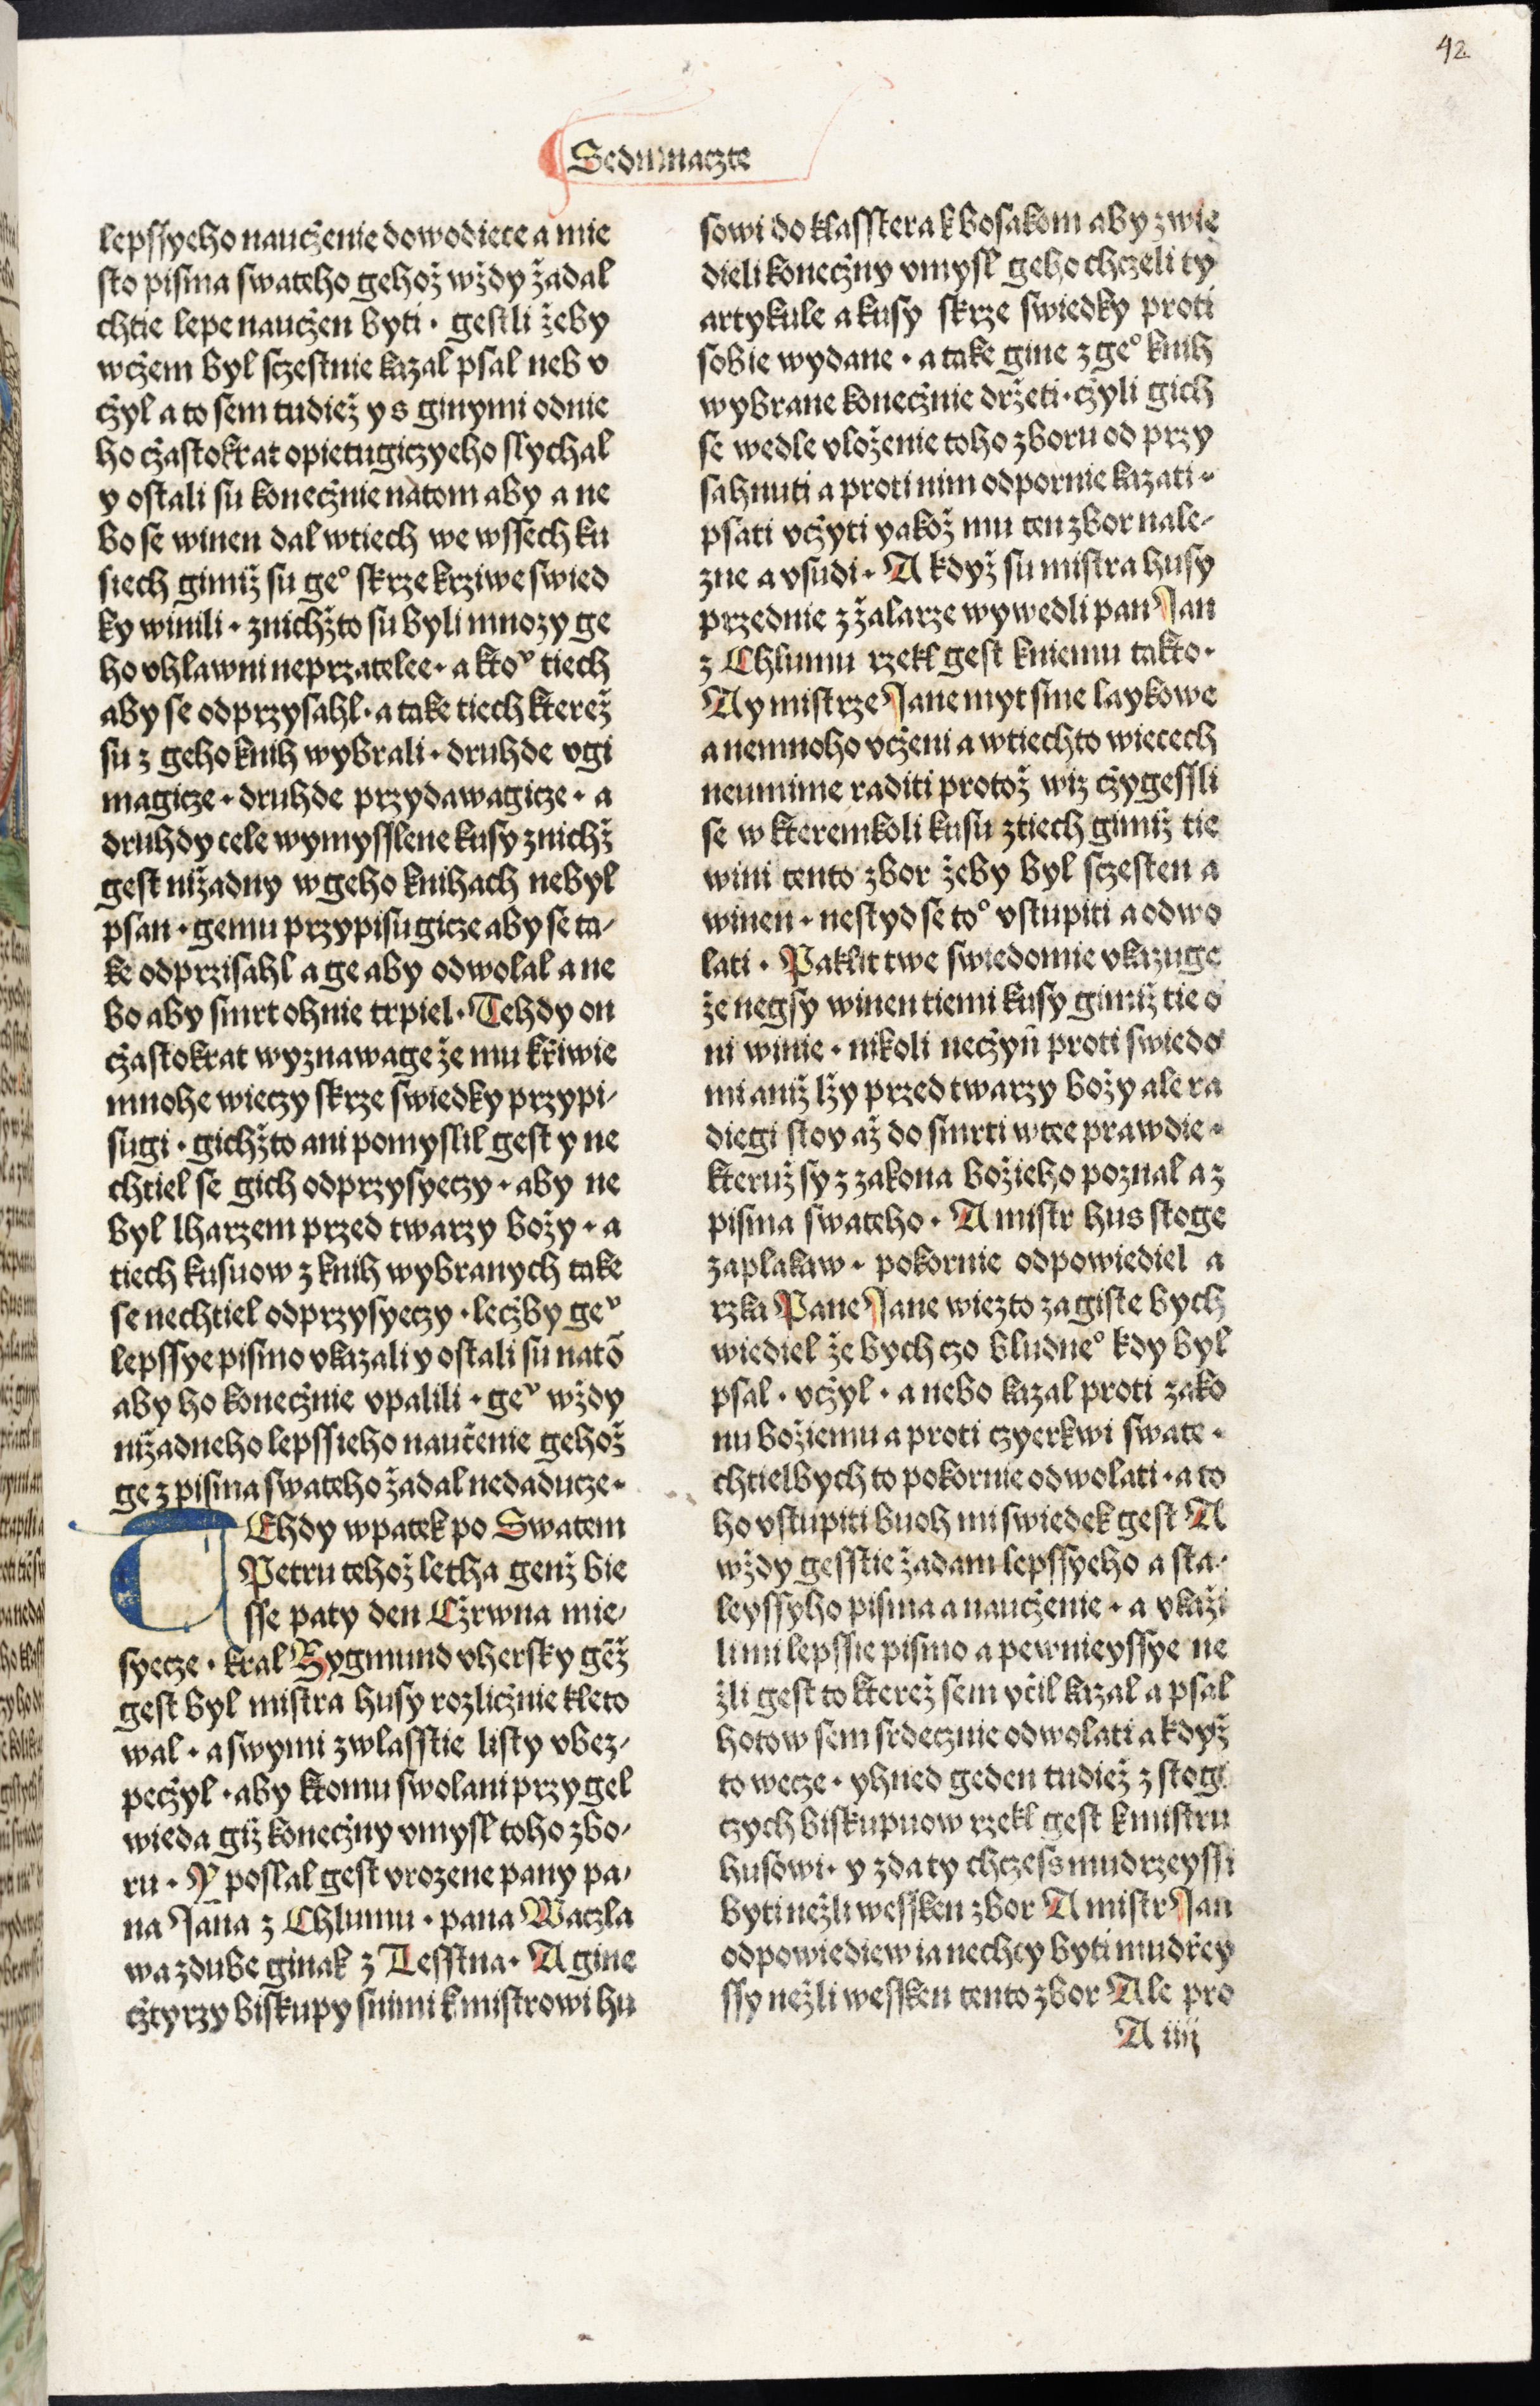 42
Sedmnaczte
lepſſyeho nauczenie dowodiece a mie
ſto piſma ſwateho gehož wždy žadal
chtie lepe nauczen byti · geſtli žeby
wczem byl ſczeſtnie kazal pſal neb v
czyl a to ſem tudiež y s ginymi odnie
ho czaſtokrat opietugiczyeho ſlychal
y oſtali ſu konecznie natom aby a ne
bo ſe winen dal wtiech we wſſech ku
ſiech gimiž ſu geº ſkrze krziwe ſwied
ky winili · znichžto ſu byli mnozy ge
ho vhlawni neprzatelee · a ktoᵛ tiech
aby ſe odprzyſahl · a take tiech kterež
ſu z geho knih wybrali · druhde vgi
magicze · druhde przydawagicze · a
druhdy cele wymyſſlene kuſy znichž
geſt nižadny w geho knihach nebyl
pſan · gemu przypiſugicze aby ſe ta⸗
ke odprziſahl a ge aby odwolal a ne
bo aby ſmrt ohnie trpiel · Tehdy on
czaſtokrat wyznawage že mu křiwie
mnohe wieczy ſkrze ſwiedky przypi⸗
ſugi · gichžto ani pomyſlil geſt y ne
chtiel ſe gich odprzyſyeczy · aby ne
byl lharzem przed twarzy božy · a
tiech kuſuow z knih wybranych take
ſe nechtiel odprzyſyeczy · leczby geᵛ
lepſſye piſmo vkazali y oſtali ſu natō
aby ho konecznie vpalili · geᵛ wždy
nižadneho lepſſieho naučenie gehož
ge z piſma ſwateho žadal nedaducze ·
TEhdy wpatek po Swatem
Petru tehož letha genž bie
ſſe paty den Czrwna mie⸗
ſyecze · kral Sygmund vherſky gēž
geſt byl miſtra huſy rozlicznie kleto
wal · a ſwymi zwlaſſtie liſty vbez⸗
peczyl · aby ktomu ſwolani przygel
wieda giž koneczny vmyſl toho zbo⸗
ru · Y poſlal geſt vrozene pany pa⸗
na Jana z Chlumu · pana Waczla
wa zdube ginak z Leſſtna · A gine
cztyrzy biſkupy ſnimi k miſtrowi hu
ſowi do klaſſtera k boſakom aby zwie
dieli koneczny vmyſl geho chczeli ty
artykule a kuſy ſkrze ſwiedky proti
ſobie wydane · a take gine z geº knih
wybrane konecznie držeti · czyli gich
ſe wedle vloženie toho zboru od przy
ſahnuti a proti nim odpornie kazati ·
pſati vczyti yakož mu ten zbor nale⸗
zne a vſudi · A když ſu miſtra huſy
przednie z žalarze wywedli pan Jan
z Chlumu rzekl geſt kniemu takto ·
Ay miſtrze Jane myt ſme laykowe
a nemnoho vczeni a wtiechto wiecech
neumime raditi protož wiz czygeſſli
ſe w kteremkoli kuſu ztiech gimiž tie
wini tento zbor žeby byl ſczeſten a
winen · neſtyd ſe toº vſtupiti a odwo
lati · Paklit twe ſwiedomie vkazuge
že negſy winen tiemi kuſy gimiž tie o
ni winie · nikoli neczyň proti ſwiedo
mi aniž lžy przed twarzy božy ale ra
diegi ſtoy až do ſmrti wtee prawdie ·
kteruž ſy z zakona božieho poznal a z
piſma ſwateho · A miſtr hus ſtoge
zaplakaw · pokornie odpowiediel a
rzka Pane Jane wiezto zagiſte bych
wiediel že bych czo bludneº kdy byl
pſal · vczyl · a nebo kazal proti zako
nu božiemu a proti czyerkwi ſwate ·
chtielbych to pokornie odwolati · a to
ho vſtupiti buoh mi ſwiedek geſt A
wždy geſſtie žadam lepſſyeho a ſta⸗
leyſſyho piſma a nauczenie · a vkaži
li mi lepſſie piſmo a pewnieyſſye ne
žli geſt to kterež ſem včil kazal a pſal
hotow ſem ſrdecznie odwolati a když
to wecze · yhned geden tudiež z ſtogi
czych biſkupuow rzekl geſt k miſtru
huſowi · y zda ty chczeſs mudrzeyſſi
byti nežli weſſken zbor A miſtr Jan
odpowiediew ia nechcy byti mudřey
ſſy nežli weſſken tento zbor Ale pro
A iiij